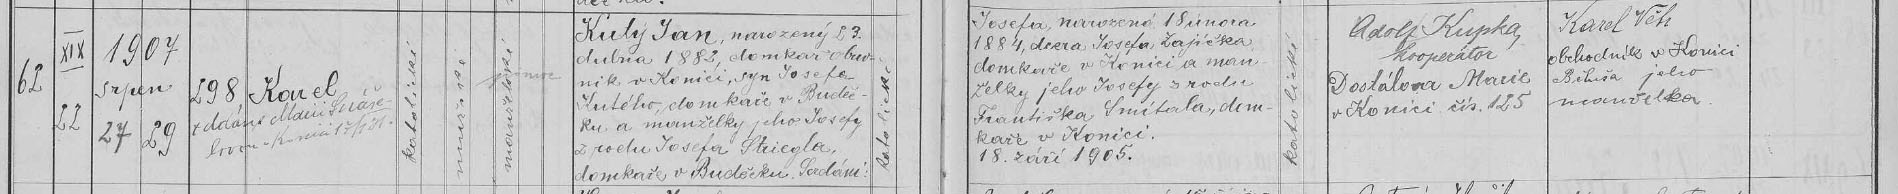 62
XIX
22
1907
srpen
27 29
298
Karel
katolické
mužské
manželské
Kutý Jan, narozený 23.
dubna 1882, domkař obuv-
ník v Konici, syn Josefa
Kutého, domkaře v Budeč-
ku a manželky jeho Josefy
z rodu Josefa Striegla,
domkaře v Budečku.
katolické
Josefa, narozená 18 února
1884, dcera Josefa Zajíčka,
domkaře v Konici a man-
želky jeho Josefy z rodu
Františka Smítala, dom-
kaře v Konici.
18. září 1905.
katolické
Adolf Kupka,
kooperátor
Dostálova Marie
v Konici čís. 125
Karel Věh
obchodník v Konici
jeho
manželka.